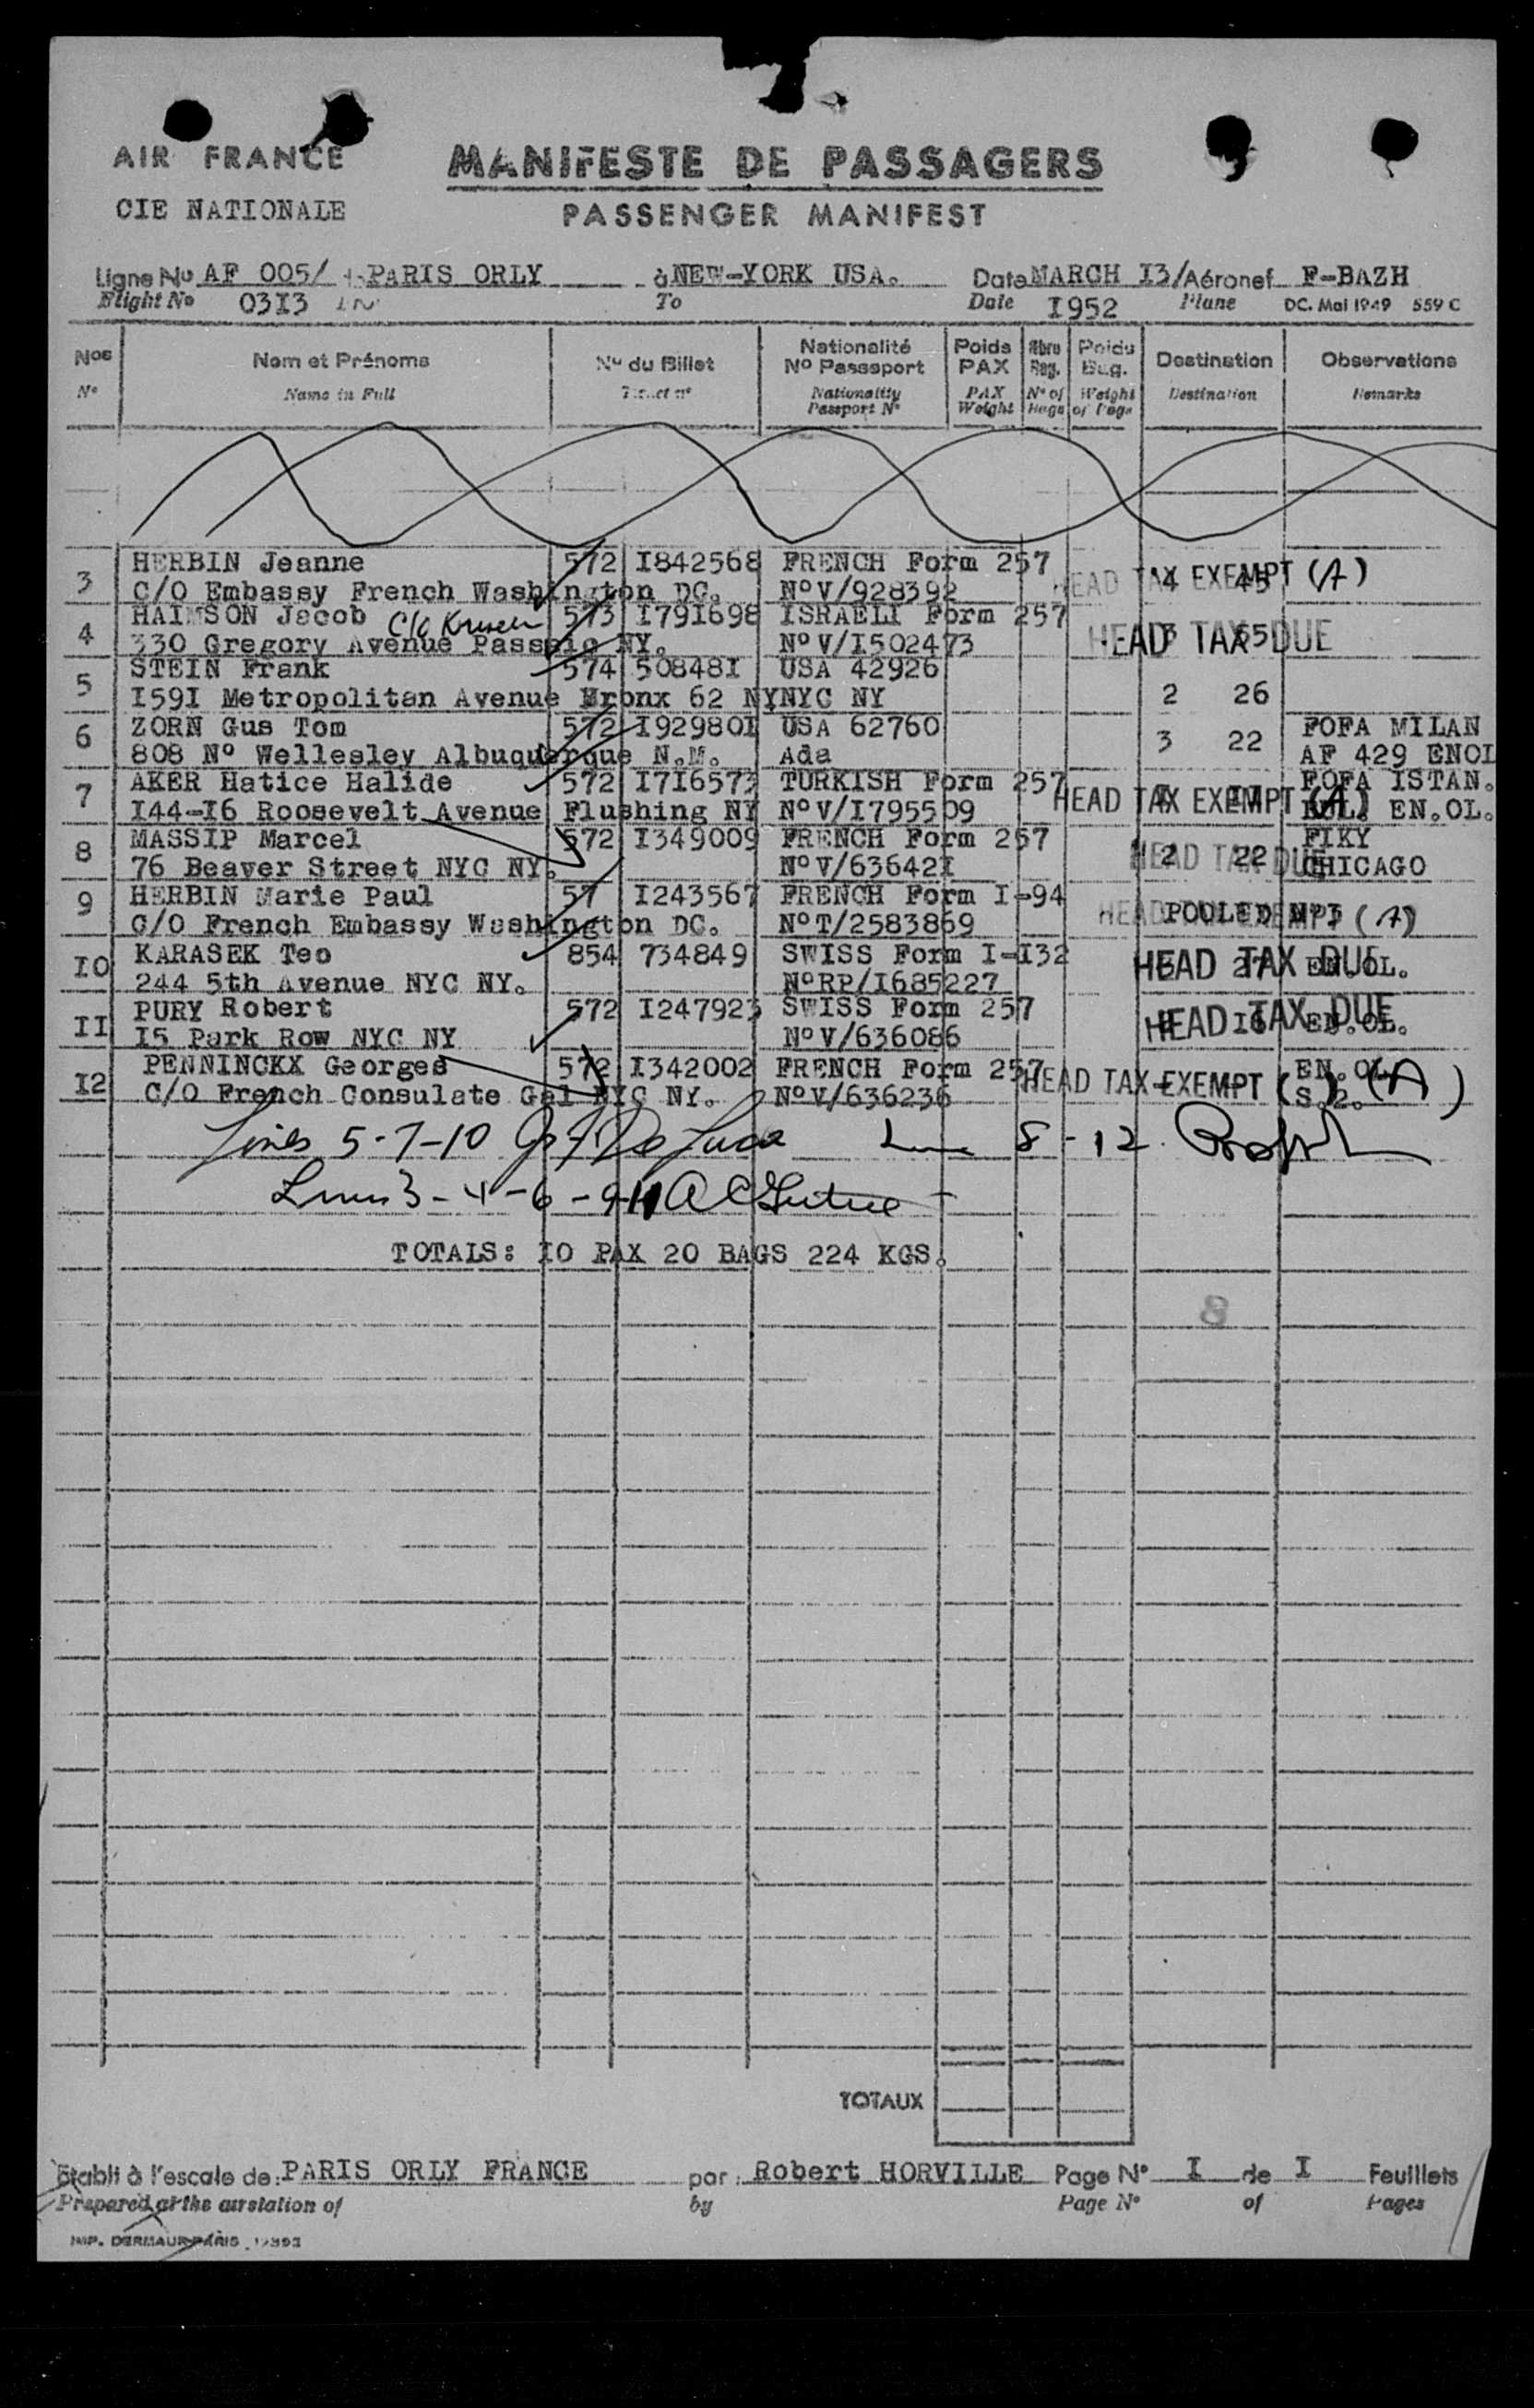 AIR FRANCE
CIE NATIONALE
MANIFESTE DE PASSAGERS
PASSENGER MANIFEST
Ligne No AF 005/ PARIS ORLY à NEW-YORK USA. Date MARCH I3/ Aéronef F-BAZH
Flight No 03I3 To Date I952 Plane DC. Mai 1949 559 C
Nos Nom et Prénoms No du Billet Nationalité No Passeport Poids PAX Nbre Bag. Poids Bag. Destination Observations
No Name in Full Ticket no Nationality Passport No PAX Weight No of Bags Weight of bags Destination Remarks
3 HERBIN Jeanne 572 I842568 FRENCH Form 257
C/O Embassy French Washington DC. No V/928392 4 45 HEAD TAX EXEMPT (A)
4 HAIMSON Jacob C/O 573 I791698 ISRAELI Form 257
330 Gregory Avenue Passaic NY. No V/I502473 3 HEAD TAX DUE
5 STEIN Frank 574 50848I USA 42926
I59I Metropolitan Avenue Bronx 62 NY NYC NY 2 26
6 ZORN Gus Tom 572 I92980I USA 62760 FOFA MILAN
808 No Wellesley Albuquerque N.M. Ada 3 22 AF 429 ENOL
7 AKER Hatice Halide 572 I7I6573 TURKISH Form 257 FOFA ISTAN.
I44-I6 Roosevelt Avenue Flushing NY No V/I795509 HEAD TAX EXEMPT (A) BUL. EN.OL.
8 MASSIP Marcel 572 I349009 FRENCH Form 257 FIKY
76 Beaver Street NYC NY. No V/63642I 2 22 HEAD TAX DUE CHICAGO
9 HERBIN Marie Paul 57 I243567 FRENCH Form I-94
C/O French Embassy Washington DC. No T/2583869 POOLED HEAD TAX EXEMPT (A)
I0 KARASEK Teo 854 734849 SWISS Form I-I32
244 5th Avenue NYC NY. No RP/I685227 HEAD TAX DUE EN.OL.
II PURY Robert 572 I247923 SWISS Form 257
I5 Park Row NYC NY No V/636086 I6 HEAD TAX DUE EN.OL.
I2 PENNINCKX Georges 572 I342002 FRENCH Form 257 EN.OL.
C/O French Consulate Gal NYC NY. No V/636236 HEAD TAX EXEMPT ( ) (A) S.2.
Lines 5-7-10 De Luca Line 8-12
Lines 3-4-6-9-11
TOTALS: IO PAX 20 BAGS 224 KGS.
8
TOTAUX
Etabli à l'escale de: PARIS ORLY FRANCE par: Robert HORVILLE Page No I de I Feuillets
Prepared at the airstation of by Page No of Pages
IMP. DERMAUR-PARIS